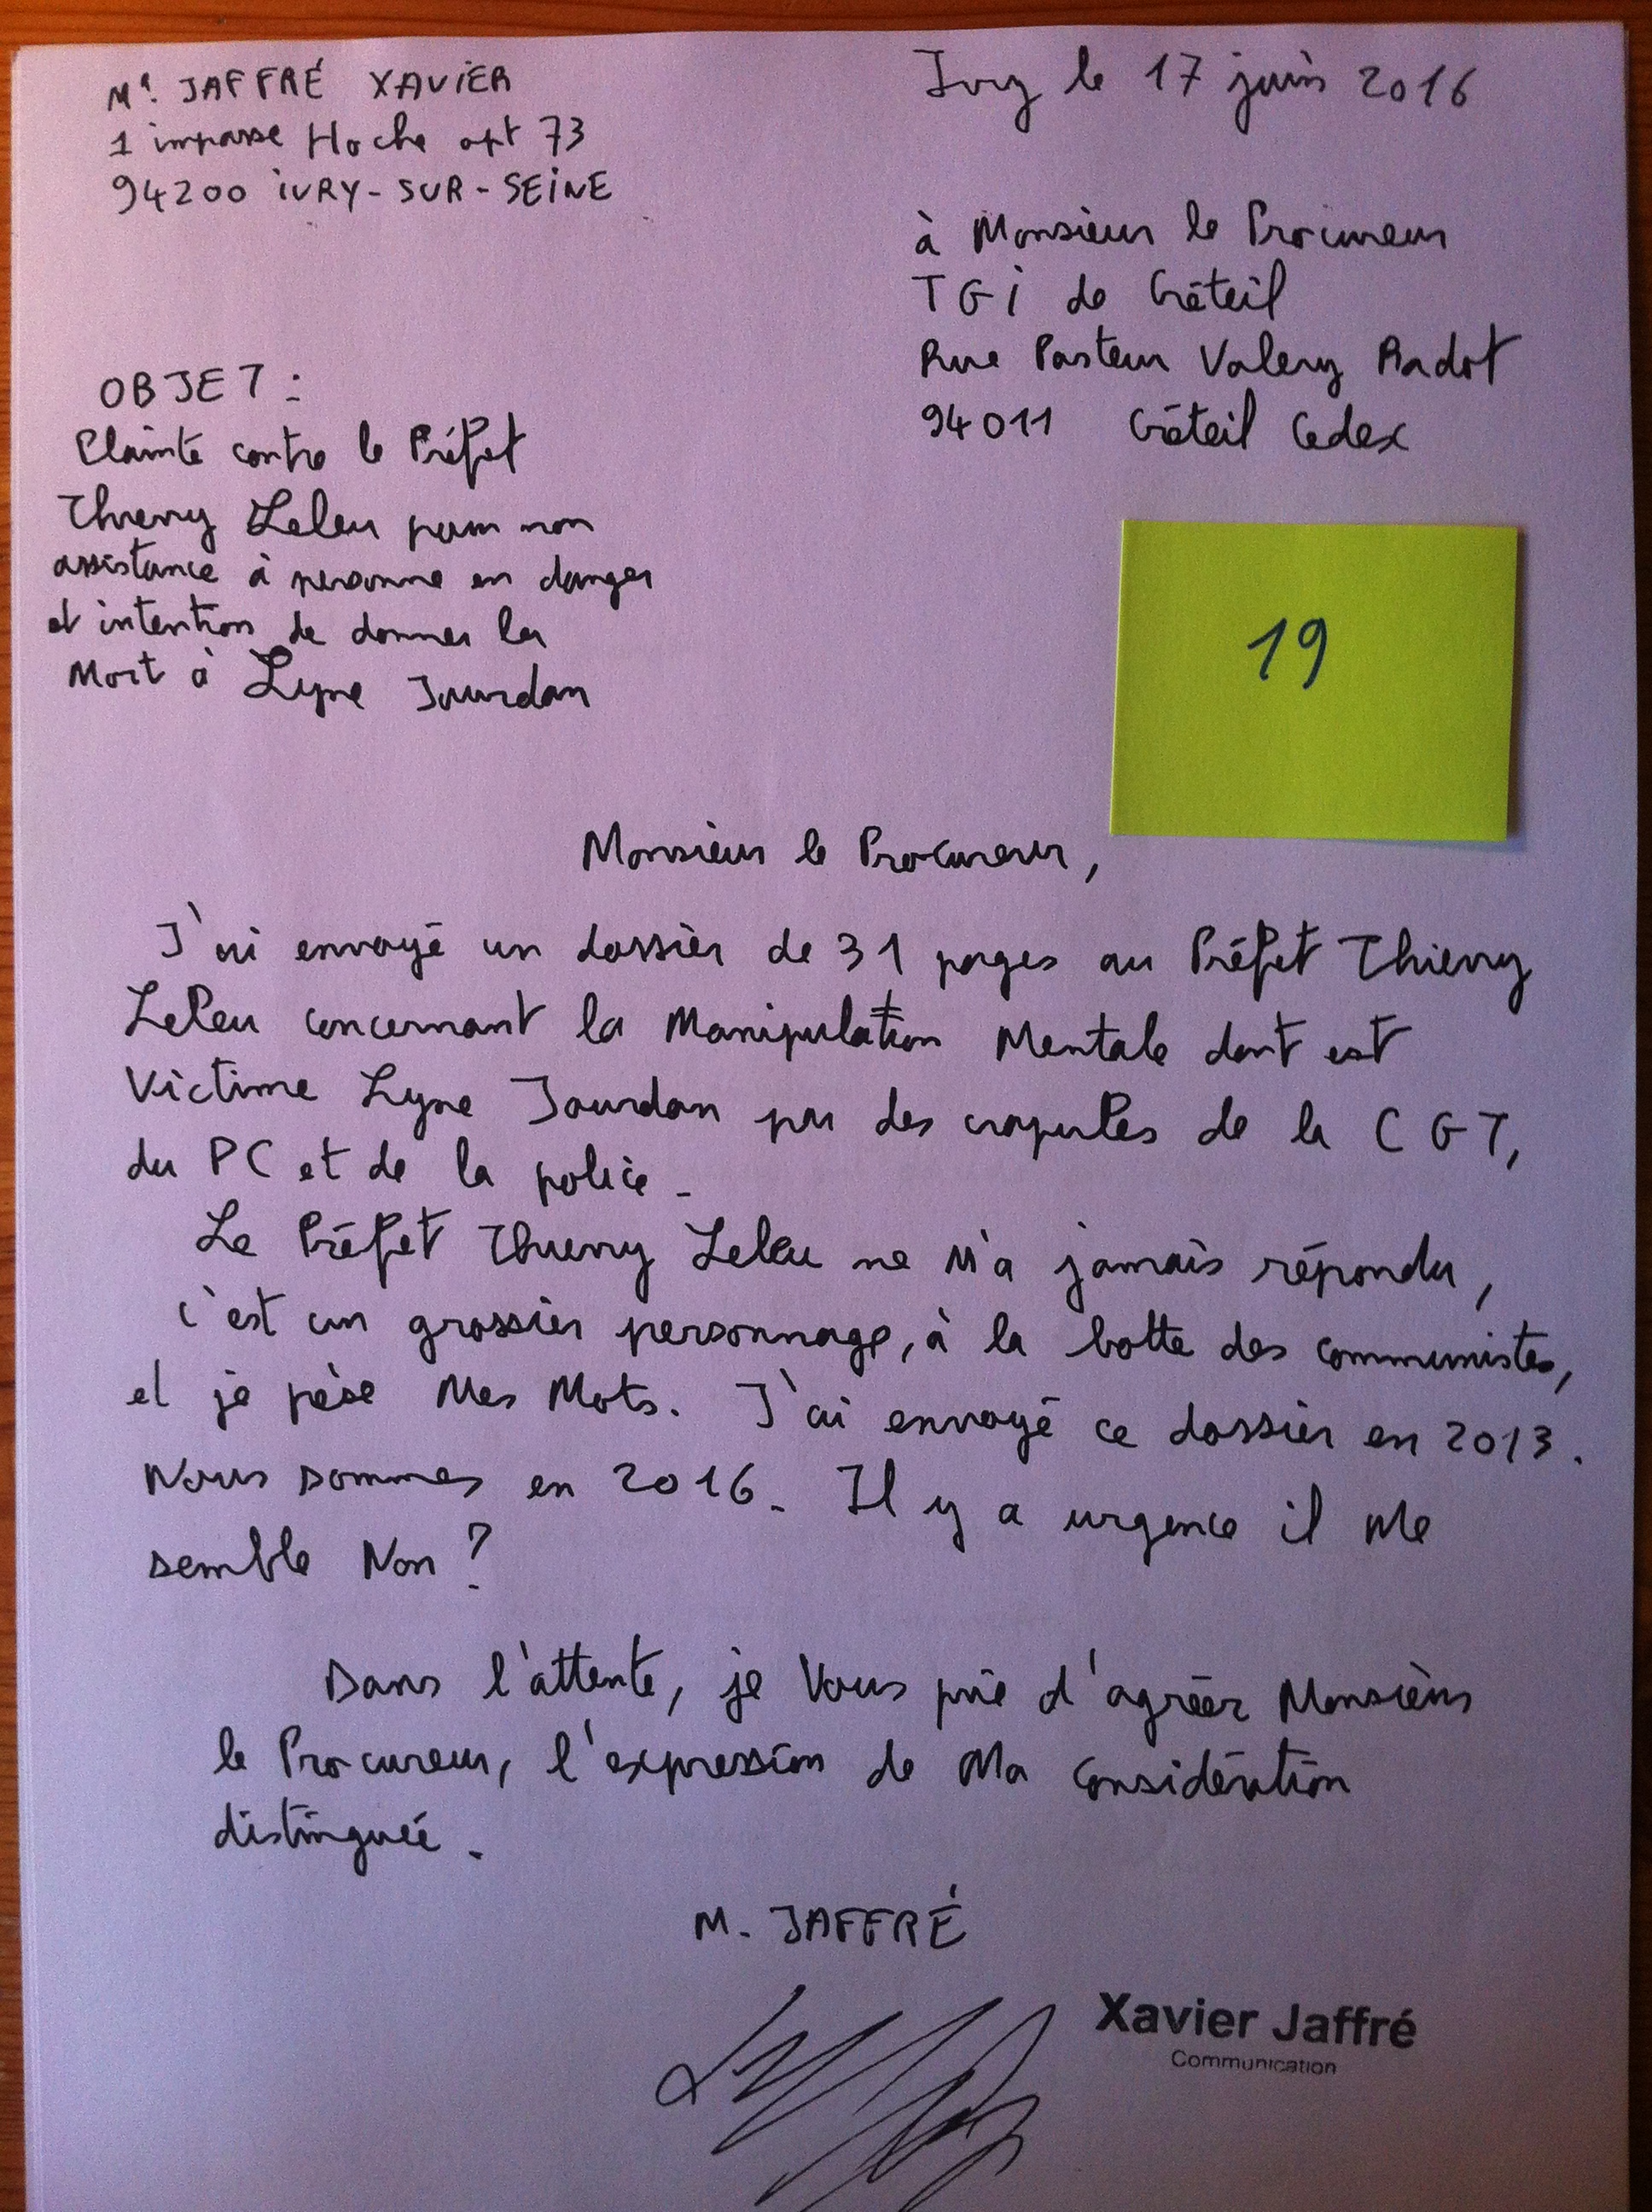 Mr. JAFFRÉ XAVIER
1 impasse Hoche apt 73
94200 IVRY-SUR-SEINE
Ivry le 17 juin 2016
à Monsieur le Procureur
TGI de Créteil
Rue Pasteur Valery Radot
94011 Créteil Cedex
OBJET :
Plainte contre le Préfet
Thierry Leleu pour non
assistance à personne en danger
et intention de donner la
Mort à Lyne Jourdan
19
Monsieur le Procureur,
J'ai envoyé un dossier de 31 pages au Préfet Thierry
Leleu concernant la Manipulation Mentale dont est
Victime Lyne Jourdan par des crapules de la CGT,
du PC et de la police.
Le Préfet Thierry Leleu ne M'a jamais répondu,
c'est un grossier personnage, à la botte des communistes,
et je pèse Mes Mots. J'ai envoyé ce dossier en 2013.
Nous sommes en 2016. Il y a urgence il Me
semble Non ?
Dans l'attente, je Vous prie d'agréer Monsieur
le Procureur, l'expression de Ma Considération
distinguée.
M. JAFFRÉ
Xavier Jaffré
Communication